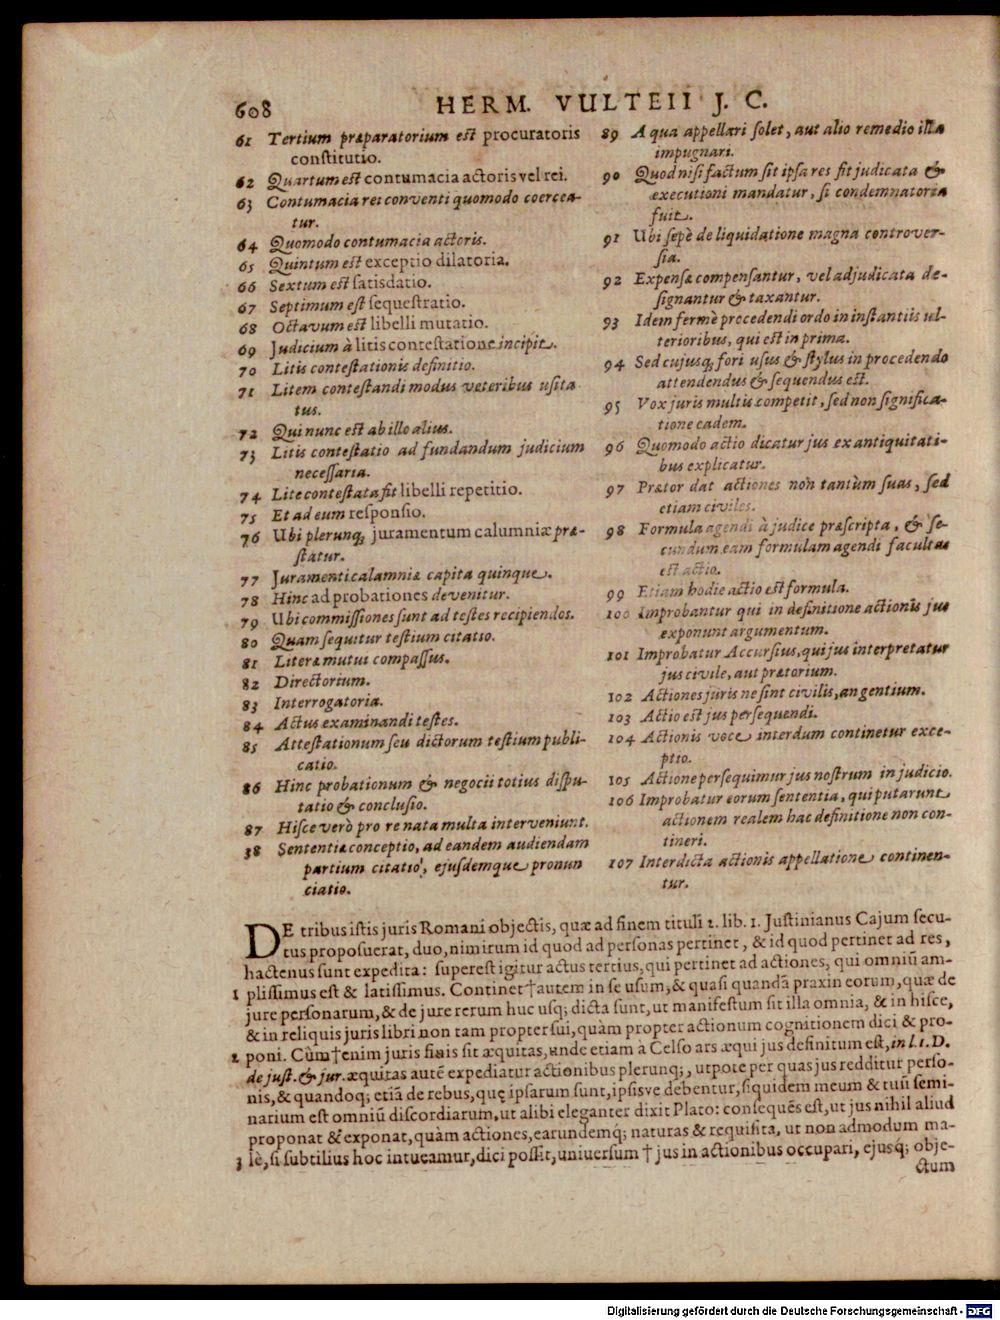 608 HERM. VULTEII J. C.
61 Tertium præparatorium est procuratoris
constitutio.
62 Quartum est contumacia actoris vel rei.
63 Contumacia rei conventi quomodo coercea-
tur.
64 Quomodo contumacia actoris.
65 Quintum est exceptio dilatoria.
66 Sextum est satisdatio.
67 Septimum est sequestratio.
68 Octavum est libelli mutatio.
69 Judicium à litis contestatione incipit.
70 Litis contestationis definitio.
71 Litem contestandi modus veteribus usita
tus.
72 Qui nunc est ab illo alius.
73 Litis contestatio ad fundandum judicium
necessaria.
74 Lite contestata fit libelli repetitio.
75 Et ad eum responsio.
76 Ubi plerunq; juramentum calumniæ præ-
statur.
77 Juramenti calamniæ capita quinque.
78 Hinc ad probationes devenitur.
79 Ubi commissiones sunt ad testes recipiendos.
80 Quam sequitur testium citatio.
81 Literæ mutui compassus.
82 Directorium.
83 Interrogatoria.
84 Actus examinandi testes.
85 Attestationum seu dictorum testium publi-
catio.
86 Hinc probationum & negocii totius dispu-
tatio & conclusio.
87 Hisce verò pro re nata multa interveniunt.
38 Sententiæ conceptio, ad eandem audiendam
partium citatio, ejusdemque pronun
ciatio.
89 A qua appellari solet, aut alio remedio illa
impugnari.
90 Quod nisi factum sit ipsa res fit judicata &
executioni mandatur, si condemnatoria
fuit.
91 Ubi sepè de liquidatione magna controver-
sia.
92 Expensæ compensantur, vel adjudicata de-
signantur & taxantur.
93 Idem fermè procedendi ordo in instantiis ul-
terioribus, qui est in prima.
94 Sed cujusq; fori usus & stylus in procedendo
attendendus & sequendus est.
95 Vox juris multis competit, sed non significa-
tione eadem.
96 Quomodo actio dicatur jus ex antiquitati-
bus explicatur.
97 Prætor dat actiones non tantùm suas, sed
etiam civiles.
98 Formula agendi à judice præscripta, & se-
cundum eam formulam agendi facultas
est actio.
99 Etiam hodie actio est formula.
100 Improbantur qui in definitione actionis jus
exponunt argumentum.
101 Improbatur Accursius, qui jus interpretatur
jus civile, aut prætorium.
102 Actiones juris ne sint civilis, an gentium.
103 Actio est jus persequendi.
104 Actionis voce interdum continetur exce-
ptio.
105 Actione persequimur jus nostrum in judicio.
106 Improbatur eorum sententia, qui putarunt
actionem realem hac definitione non con-
tineri.
107 Interdicta actionis appellatione continen-
tur.
DE tribus istis juris Romani objectis, quæ ad finem tituli 2. lib. 1. Justinianus Cajum secu-
tus proposuerat, duo, nimirum id quod ad personas pertinet, & id quod pertinet ad res,
hactenus sunt expedita: superest igitur actus tertius, qui pertinet ad actiones, qui omniũ am-
1 plissimus est & latissimus. Continet † autem in se usum, & quasi quandã praxin eorum, quæ de
jure personarum, & de jure rerum huc usq; dicta sunt, ut manifestum sit illa omnia, & in hisce,
& in reliquis juris libri non tam propter sui, quàm propter actionum cognitionem dici & pro-
2 poni. Cùm † enim juris finis sit æquitas, unde etiam à Celso ars æqui jus definitum est, in l. 1. D.
de just. & jur. æquitas autẽ expediatur actionibus plerunq;, utpote per quas jus redditur perso-
nis, & quandoq; etiã de rebus, quę ipsarum sunt, ipsisve debentur, siquidem meum & tuũ semi-
narium est omniũ discordiarum, ut alibi eleganter dixit Plato: consequẽs est, ut jus nihil aliud
proponat & exponat, quàm actiones, earundemq́; naturas & requisita, ut non admodum ma-
3 lè, si subtilius hoc intueamur, dici possit, universum † jus in actionibus occupari, ejusq́; obje-
ctum
Digitalisierung gefördert durch die Deutsche Forschungsgemeinschaft - DFG